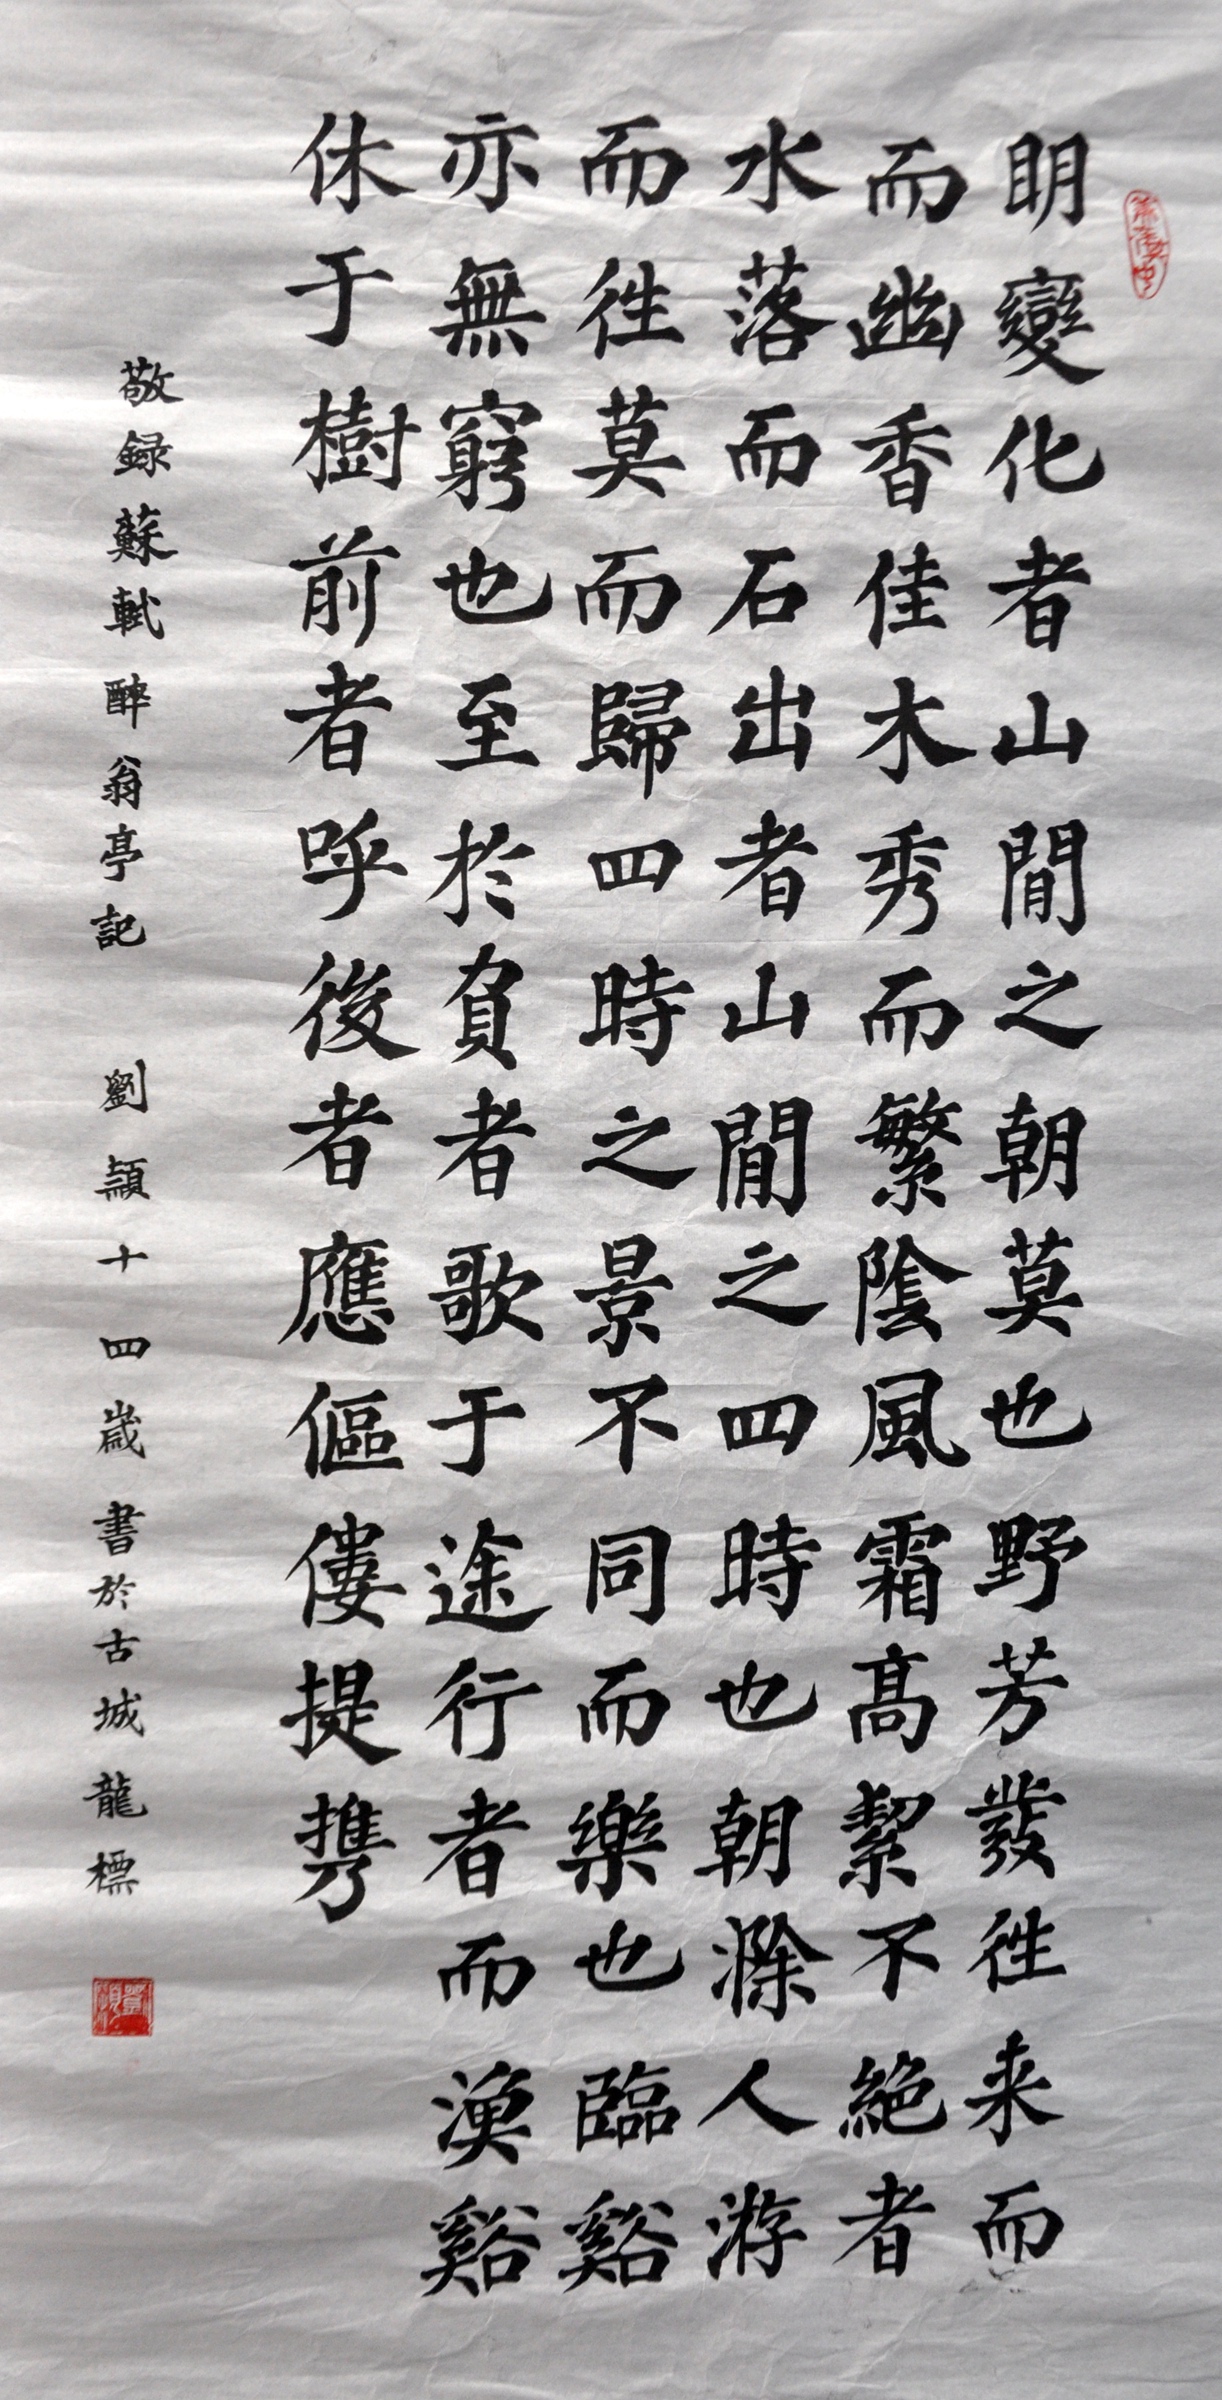 明變化者山間之朝莫也野芳發往来而
而幽香佳木秀而繁陰風霜高絜不絶者
水落而石出者山間之四時也朝滁人游
而往莫而歸四時之景不同而樂也臨谿
亦無窮也至於負者歌于途行者而漁谿
休于樹前者呼後者應傴僂提攜
敬録蘇軾醉翁亭記 劉頴十四歲書於古城龍標